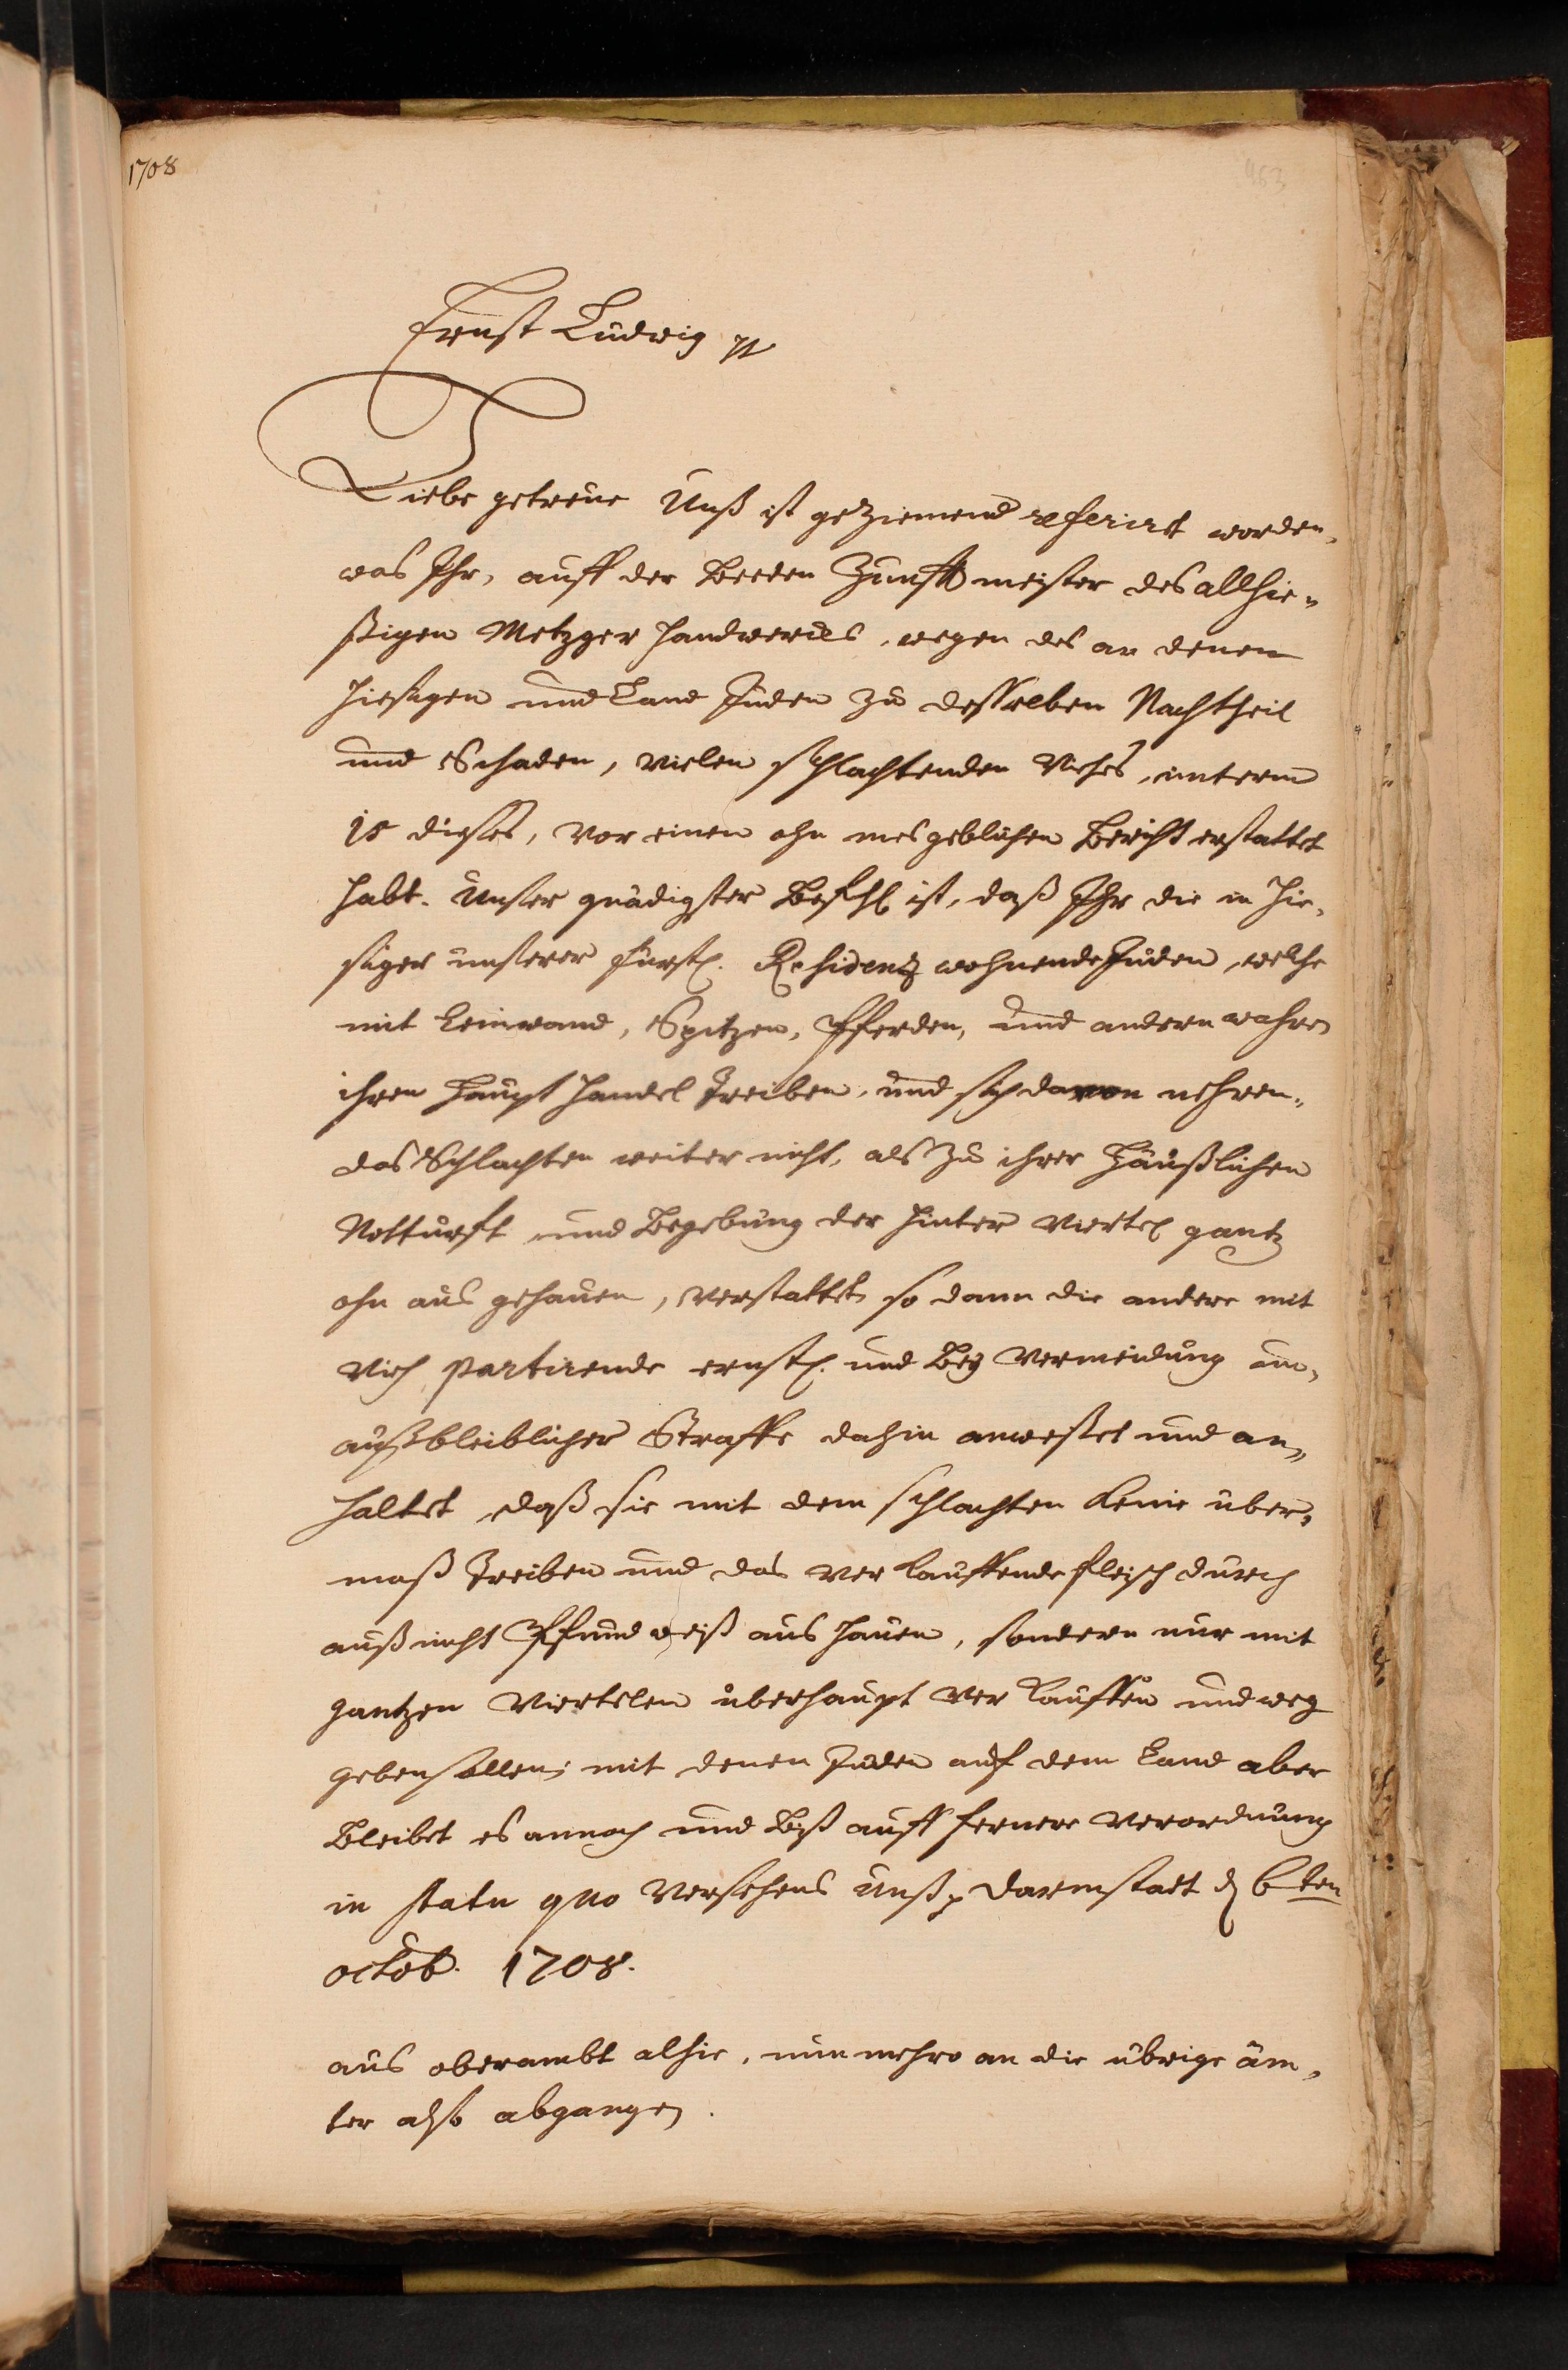 1708
463
Ernst Ludwig ꝛc
Liebe getreue Unß ist geziemend referiret worden,
was Ihr, auff der beeden Zunfftmeister des allhie-
ßigen Metzger Handwercks, wegen des an denen
hiesigen und Land Juden zu desselben Nachtheil
und Schaden, vielen schlachtenden Viehes, unterm
15 dieses, vor einen ohn masgeblichen Bericht erstattet
habt. Unser gnädigster Befehl ist, daß Ihr die in hie-
siger unserer fürstl. Residentz wohnende Juden, welche
mit Leinwand, Spitzen, Pferden, und andern wahren
ihren Haupt Handel treiben, und sich davon nehren,
das Schlachten weiter nicht, als zu ihrer Häußlichen
Notturfft und Begebung der hinter Viertel gantz
ohn aus gehauen, verstattet, so dann die andere mit
Vieh partirende ernstl. und bey Vermeidung un-
außbleiblicher Straffe dahin anweßet und an-
haltet, daß sie mit dem schlachten keine über-
maß treiben und das verkauffende fleisch durch
auß nicht Pfundweiß aus hauen, sondern nur mit
gantzen Viertelen überhaupt verkauffen und weg
geben sollen; mit denen Juden auf dem Land aber
bleibet es annoch und biß auff fernere Verordnung
in statu quo Versehens Unß, Darmstatt d 6ten
octob. 1708.
aus oberambt alhie, nunmehro an die übrige äm-
ter also abgangen.